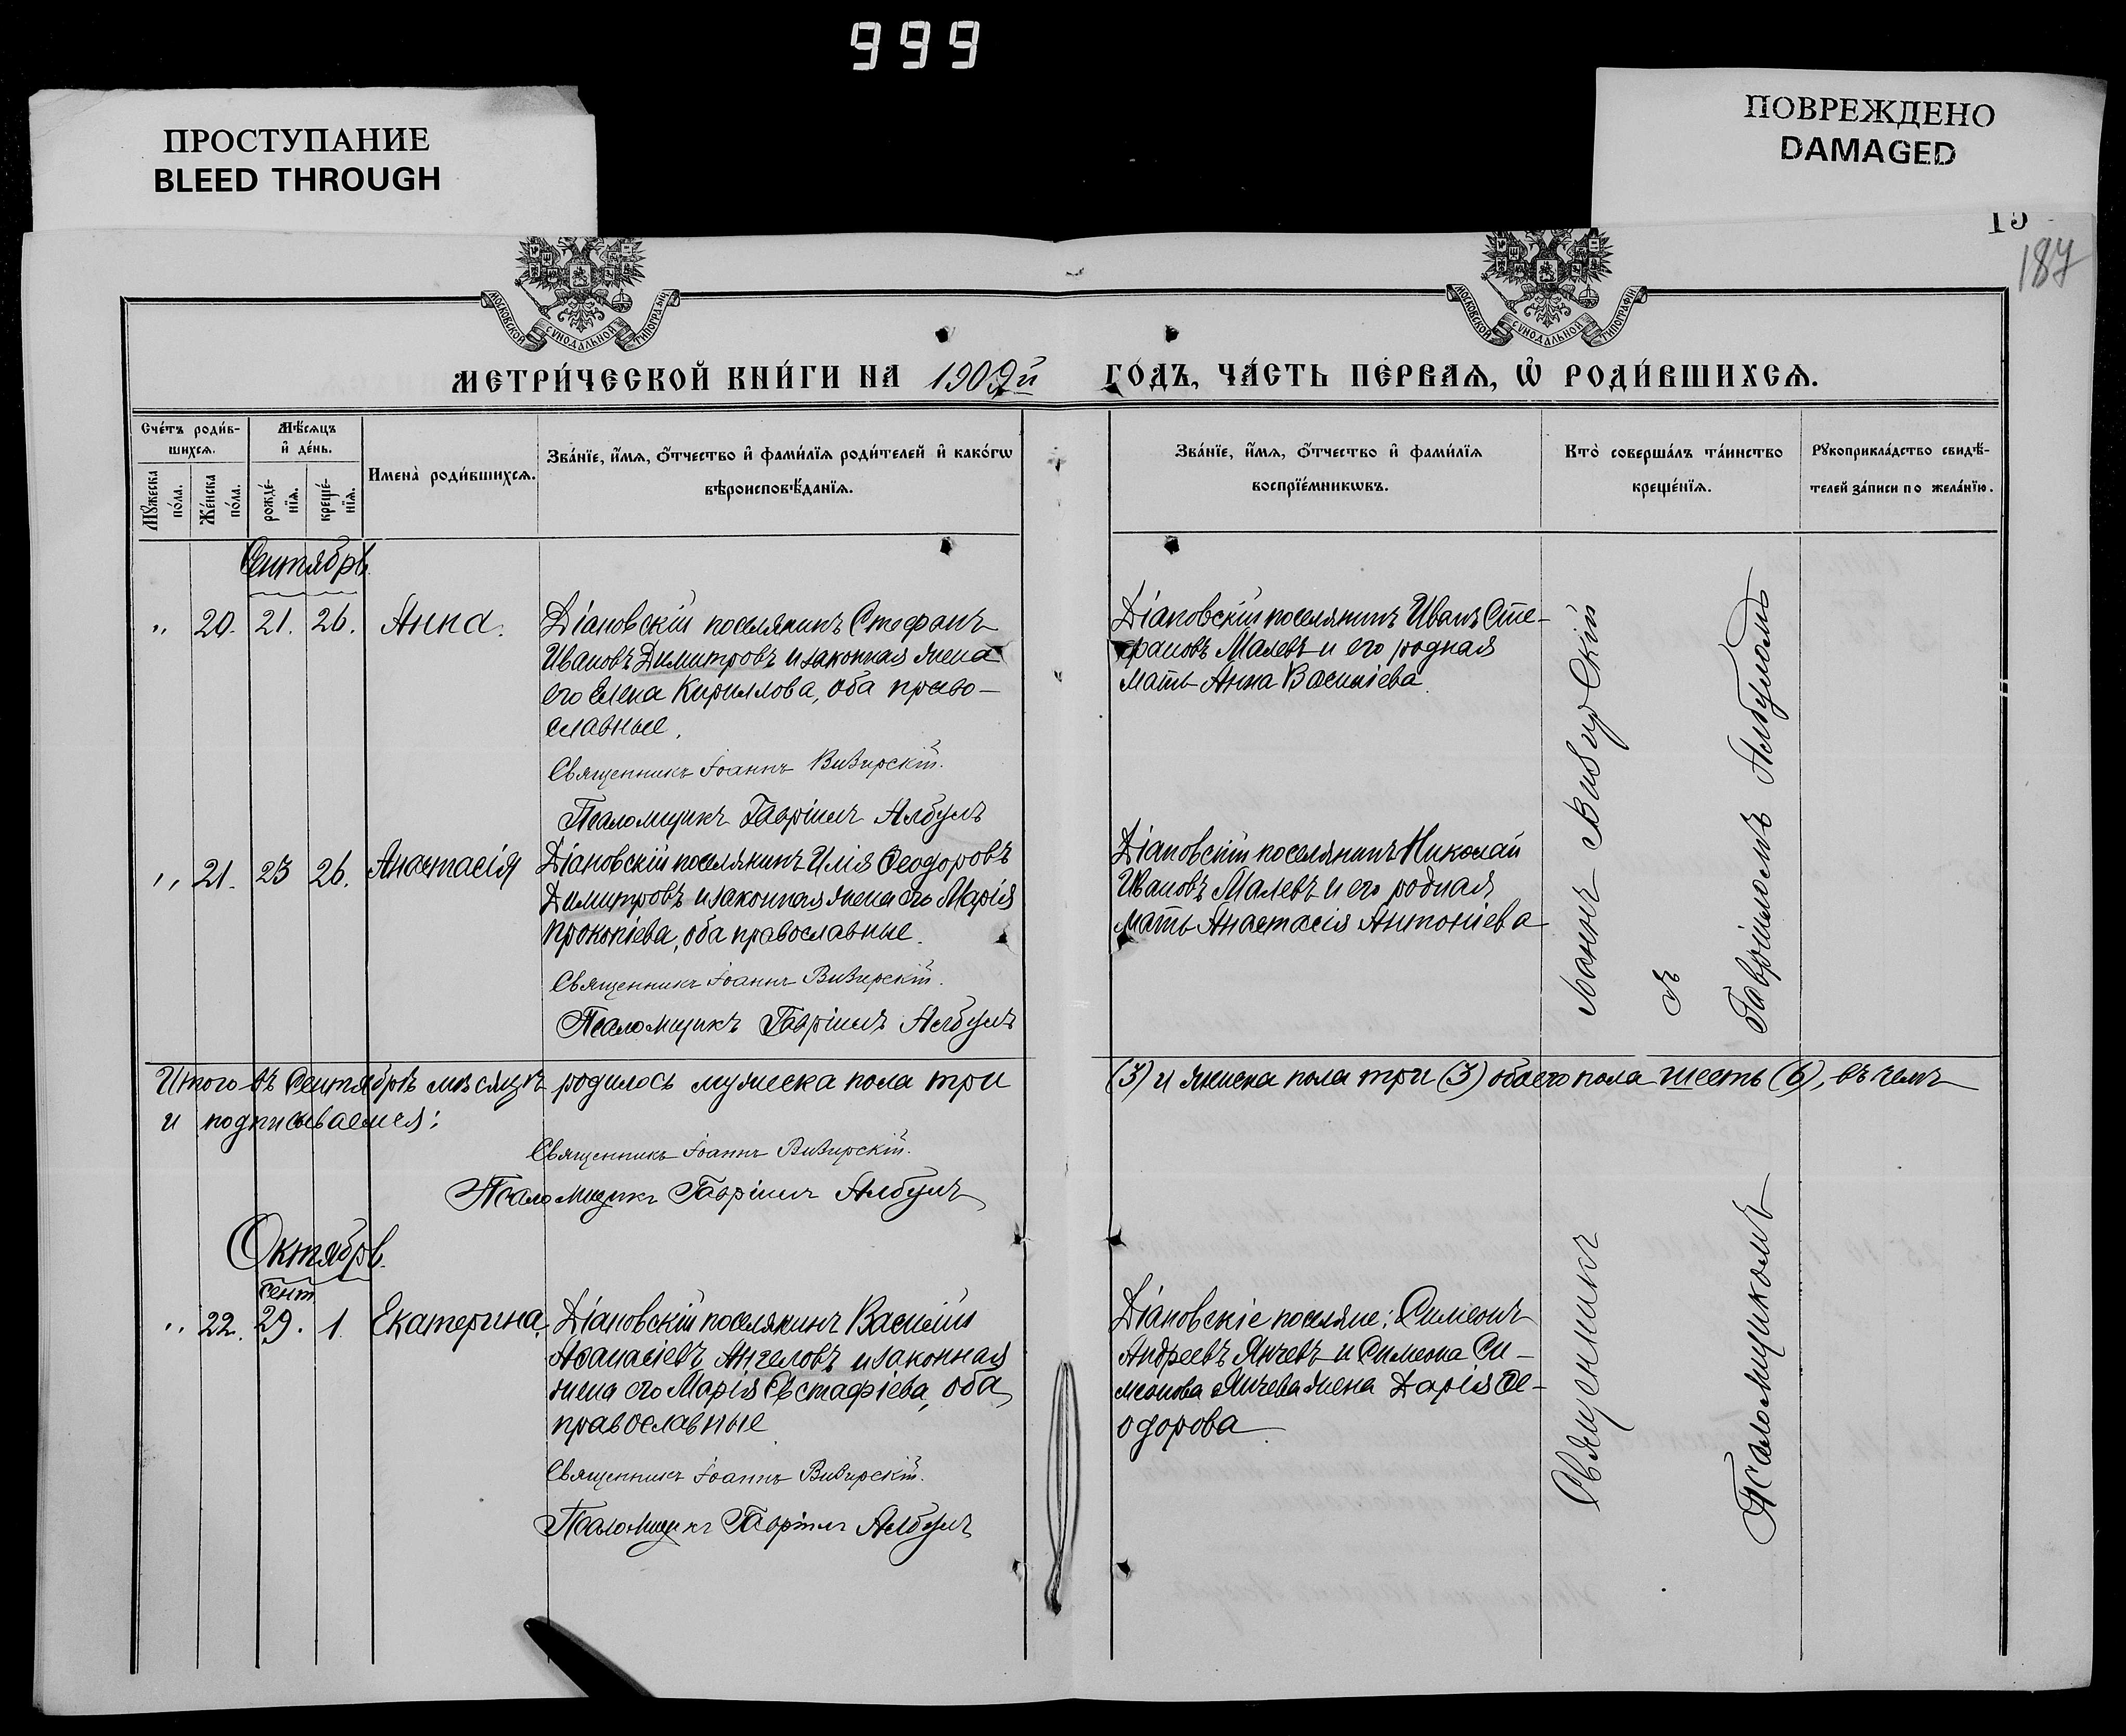 999
ПРОСТУПАНИЕ
BLEED THROUGH
ПОВРЕЖДЕНО
DAMAGED
15
187
МОСКОВСКОЙ СѴНОДАЛЬНОЙ ТИПОГРАФІИ
МОСКОВСКОЙ СѴНОДАЛЬНОЙ ТИПОГРАФІИ
МЕТРИ́ЧЕСКОЙ КНИ́ГИ НА 1909й ГО́ДЪ, ЧА́СТЬ ПЕ́РВАѦ, Ѡ҆ РОДИ́ВШИХСѦ.
Сче́тъ роди́в-
шихсѧ.
Мѣ́сѧцъ
и҆ де́нь.
Мꙋ́жеска по́ла.
Же́нска по́ла.
рожде́-
нїѧ.
креще́-
нїѧ.
Имена̀ роди́вшихсѧ.
Зва́нїе, и҆́мѧ, ѻ҆́тчество и҆ фами́лїѧ роди́телей и҆ како́гѡ
вѣроисповѣ́данїѧ.
Зва́нїе, и҆́мѧ, ѻ҆́тчество и҆ фами́лїѧ
воспрїе́мникѡвъ.
Кто̀ соверша́лъ та́инство
креще́нїѧ.
Рꙋкоприкла́дство свидѣ́-
телей за́писи по жела́нїю.
Сентябрь.
" 20. 21. 26. Анна.
Діановскій поселянинъ Стефанъ
Ивановъ Димитровъ и законная жена
его Елена Кириллова, оба право-
славные.
Священникъ Іоаннъ Визирскій.
Псаломщикъ Гавріилъ Албулъ
Діановскій поселянинъ Иванъ Сте-
фановъ Малевъ и его родная
мать Анна Василіева
" 21. 23 26. Анастасія
Діановскій поселянинъ Илія Ѳеодоровъ
Димитровъ и законная жена его Марія
Прокопіева, оба православные.
Священникъ Іоаннъ Визирскій.
Псаломщикъ Гавріилъ Албулъ
Діановскій поселянинъ Николай
Ивановъ Малевъ и его родная
мать Анастасія Антоніева
Итого въ Сентябрѣ мѣсяцѣ родилось мужеска пола три (3) и женска пола три (3) обоего пола шесть (6), въ чемъ
и подписываемся:
Священникъ Іоаннъ Визирскій.
Псаломщикъ Гавріилъ Албулъ
Октябрь.
сент.
" 22. 29. 1. Екатерина.
Діановскій поселянинъ Василій
Аѳанасіевъ Ангеловъ и законная
жена его Марія Евстафіева, оба
православные
Священникъ Іоаннъ Визирскій.
Псаломщикъ Гавріилъ Албулъ
Діановскіе поселяне: Симеонъ
Андреевъ Янчевъ и Симеона Си-
меонова Янчева жена Дарія Ѳе-
одорова
Священникъ Іоаннъ Визирскій
съ
Псаломщикомъ Гавріиломъ Албуломъ